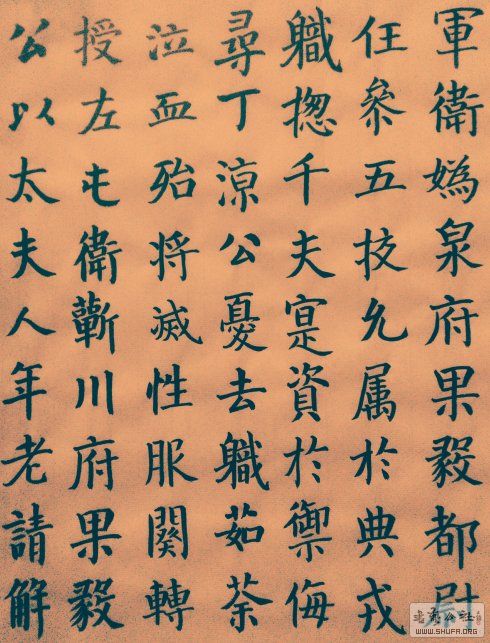 軍衛媯泉府果毅都尉
任叅五技允属於典戎
職揔千夫寔資於禦侮
尋丁涼公憂去職茹荼
泣血殆将滅性服闋轉
授左屯衛蘄川府果毅
公以太夫人年老請解
WWW.SHUFA.ORG